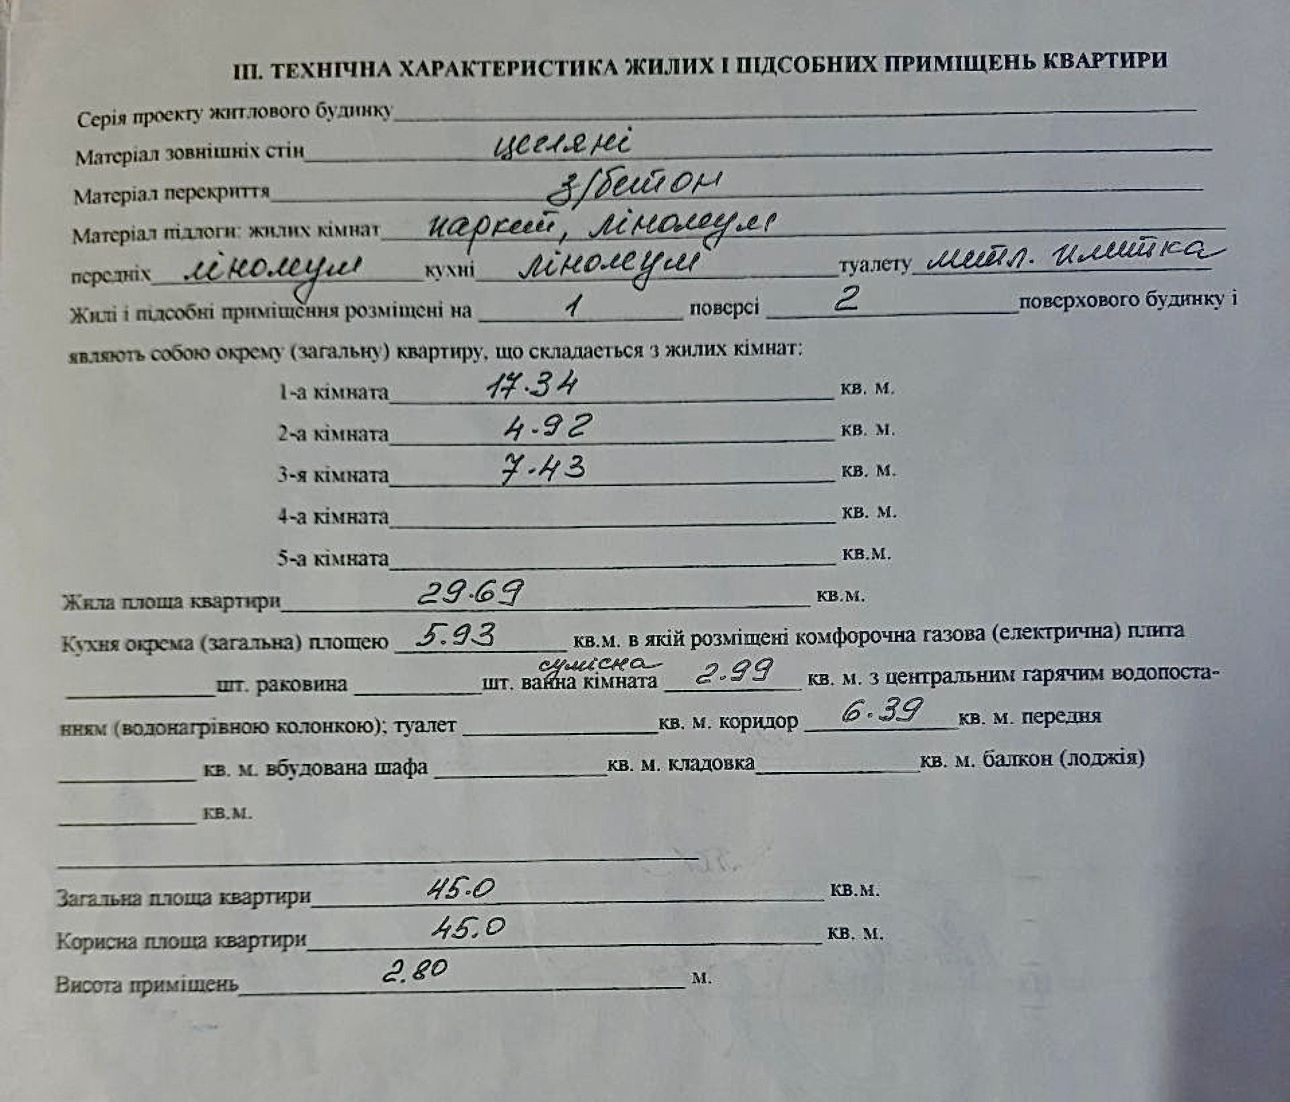 ІІІ. ТЕХНІЧНА ХАРАКТЕРИСТИКА ЖИЛИХ І ПІДСОБНИХ ПРИМІЩЕНЬ КВАРТИРИ
Серія проекту житлового будинку
Матеріал зовнішніх стін цегляні
Матеріал перекриття з/бетон
Матеріал підлоги: жилих кімнат паркет, лінолеум
передніх лінолеум кухні лінолеум туалету метл. плитка
Жилі і підсобні приміщення розміщені на 1 поверсі 2 поверхового будинку і
являють собою окрему (загальну) квартиру, що складається з жилих кімнат:
1-а кімната 17.34 кв. м.
2-а кімната 4.92 кв. м.
3-я кімната 7.43 кв. м.
4-а кімната кв. м.
5-а кімната кв.м.
Жила площа квартири 29.69 кв.м.
Кухня окрема (загальна) площею 5.93 кв.м. в якій розміщені комфорочна газова (електрична) плита
сумісна
шт. раковина шт. ванна кімната 2.99 кв. м. з центральним гарячим водопоста-
нням (водонагрівною колонкою); туалет кв. м. коридор 6.39 кв. м. передня
кв. м. вбудована шафа кв. м. кладовка кв. м. балкон (лоджія)
кв.м.
Загальна площа квартири 45.0 кв.м.
Корисна площа квартири 45.0 кв. м.
Висота приміщень 2.80 м.